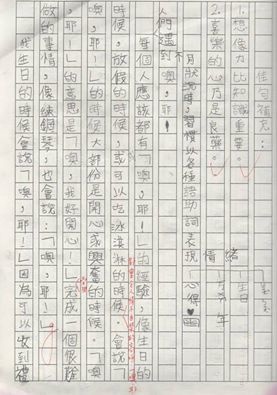 佳句補充：
1.想像力比知識重要。
2.喜樂的心乃是良藥。
狀況時，習慣以各種語助詞表現情緒
生日
年
人們遇到不
噢，耶！
每個人應該都有「噢，耶！」的經驗，像生日的
時候，放假的時候，或可以吃冰淇淋的時候，會說「
噢，耶！」的時候大部份是開心或興奮的時候。「噢
，耶！」的意思是「我好開心！」完成一個很難
做的事情，像練鋼琴，也會說：「噢，耶！」
我生日的時候會說「噢，耶！」因為可以收到禮